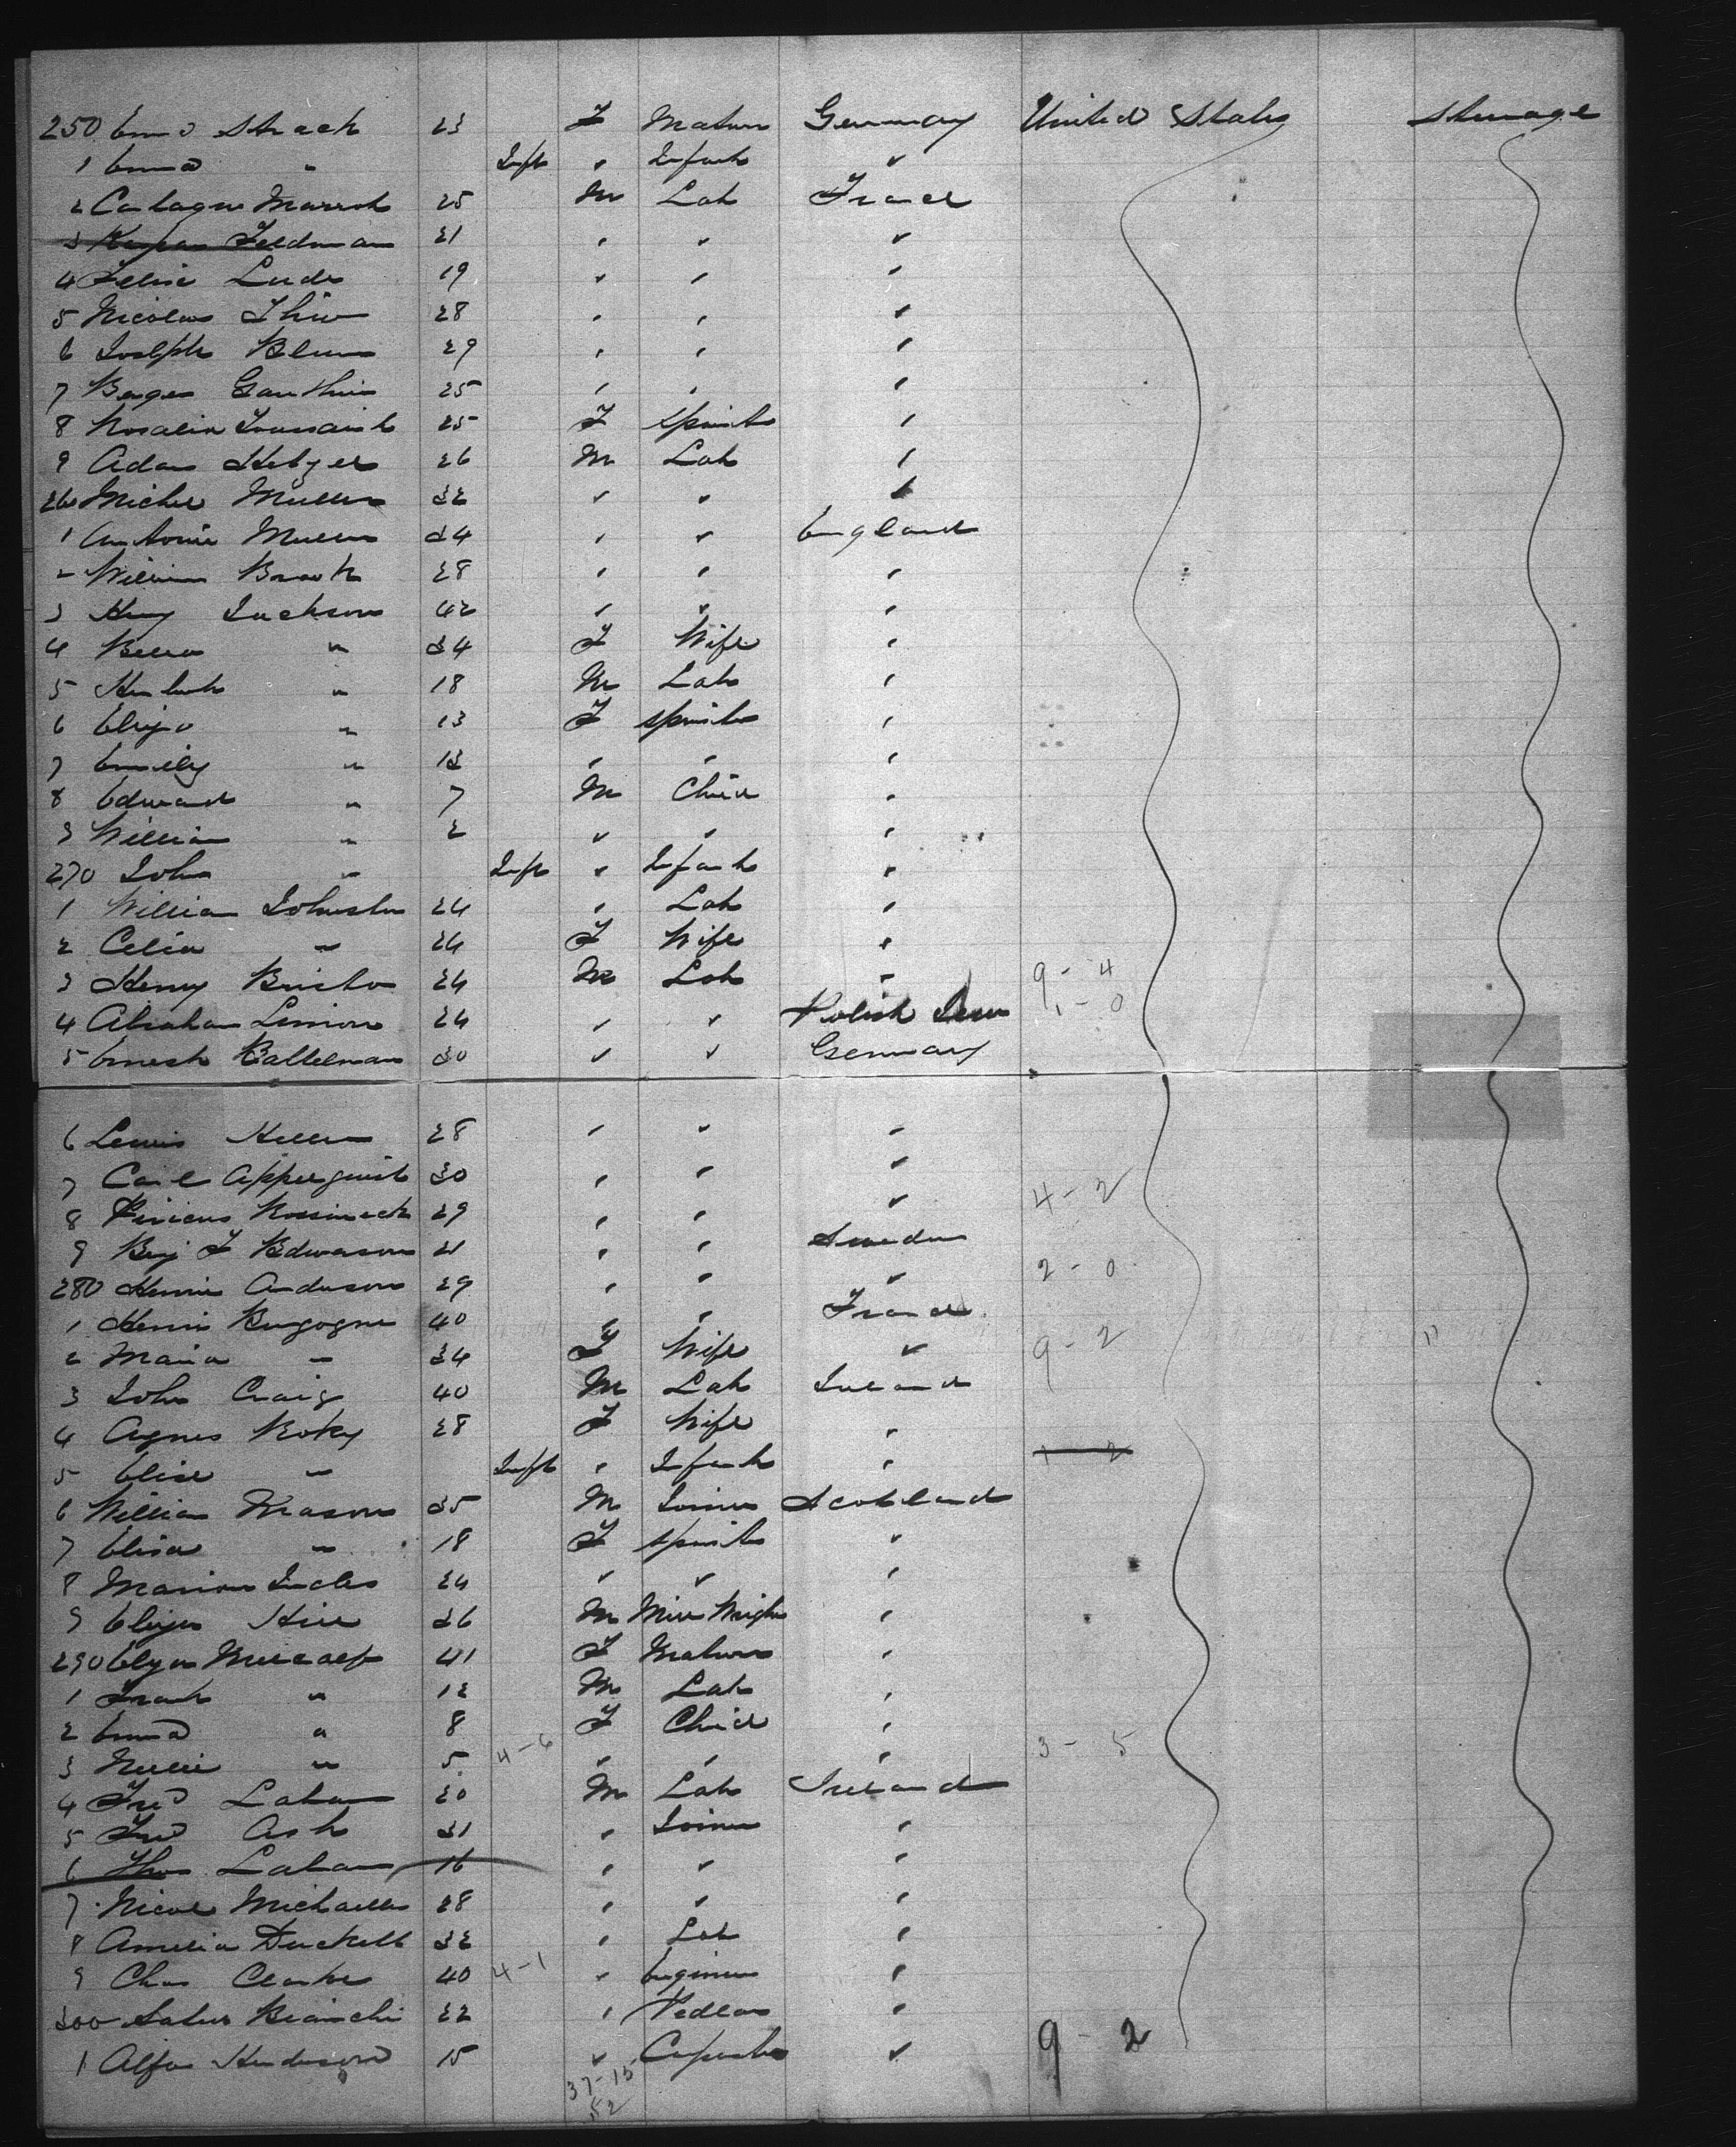 250 Emma Strack 23 F Matron Germany United States Steerage
1 Emma " Inft " Infant "
2 Marrot 25 M Lab France
3 Feldman 21 " " "
4 Felix Lude 19 " " "
5 Nicolas Thiw 28 " " "
6 Joseph Blum 29 " " "
7 Gauthier 25 " " "
8 Rosalia Toussaint 25 F Spinster "
9 Adam Hetzger 26 M Lab "
260 Michel Muller 32 " " "
1 Antonie Muller 34 " " England
2 William Brook 28 " " "
3 Hny Jackson 42 " " "
4 " 34 F Wife "
5 Herbert " 18 M Lab "
6 Eliza " 13 F Spinster "
7 Emily " " " "
8 Edward " 7 M Child "
9 William " 2 " " "
270 John " Inft " Infant "
1 William Johnston 24 " Lab "
2 Celia " 24 F Wife "
3 Henry Bristo 24 M Lab " 9-4
4 Abraham Limon 24 " " Polish Jew 1-0
5 Ernest Battelman 30 " " Germany
6 Lewis Heller 28 " " "
7 Carl Apperquist 30 " " "
8 29 " " " 4-2
9 Benj F 21 " " Sweden
280 Henri Anderson 29 " " " 2-0
1 Henri Burgogne 40 " " France
2 Maria " 34 F Wife " 9-2
3 John Craig 40 M Lab Ireland
4 Agnes Roky 28 F Wife "
5 Elise " Inft " Infant " 1 2
6 William Mason 35 M Joiner Scotland
7 Elisa " 18 F Spinster "
8 Marion Inches 24 " " "
9 Hill 36 M Mill Wright "
290 Metcalf 41 F Matron "
1 Frank " 12 M Lab "
2 Emma " 8 F Child "
3 Nellie " 5 4-6 " " " 3-5
4 Fred Lahan 20 M Lab Ireland
5 Fred Ash 31 " Joiner "
6 Thos Lahan 16 " " "
7 Nicol Michaelles 28 " " "
8 Amelia Duckett 32 " Lab "
9 Chas Clarke 40 4-1 " Engineer "
300 Bianchi 22 " Pedlar "
1 Alfon Henderson 15 " Carpenter " 9-2
37-15
52